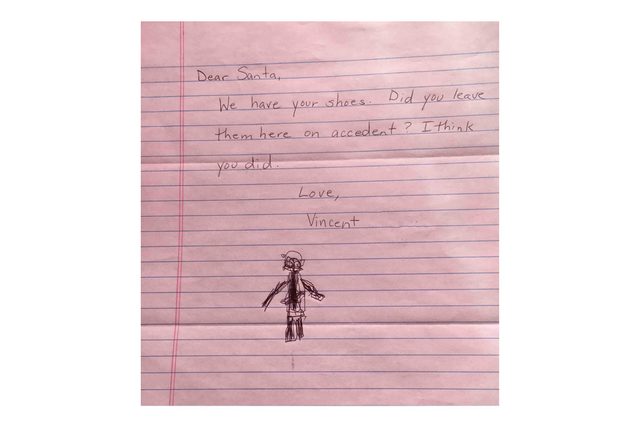 Dear Santa,
We have your shoes. Did you leave
them here on accedent? I think
you did.
Love,
Vincent